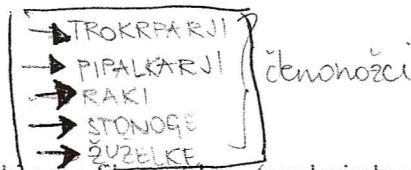 TROKRPARJI
PIPALKARJI
RAKI
STONOGE
ŽUŽELKE
členonožci